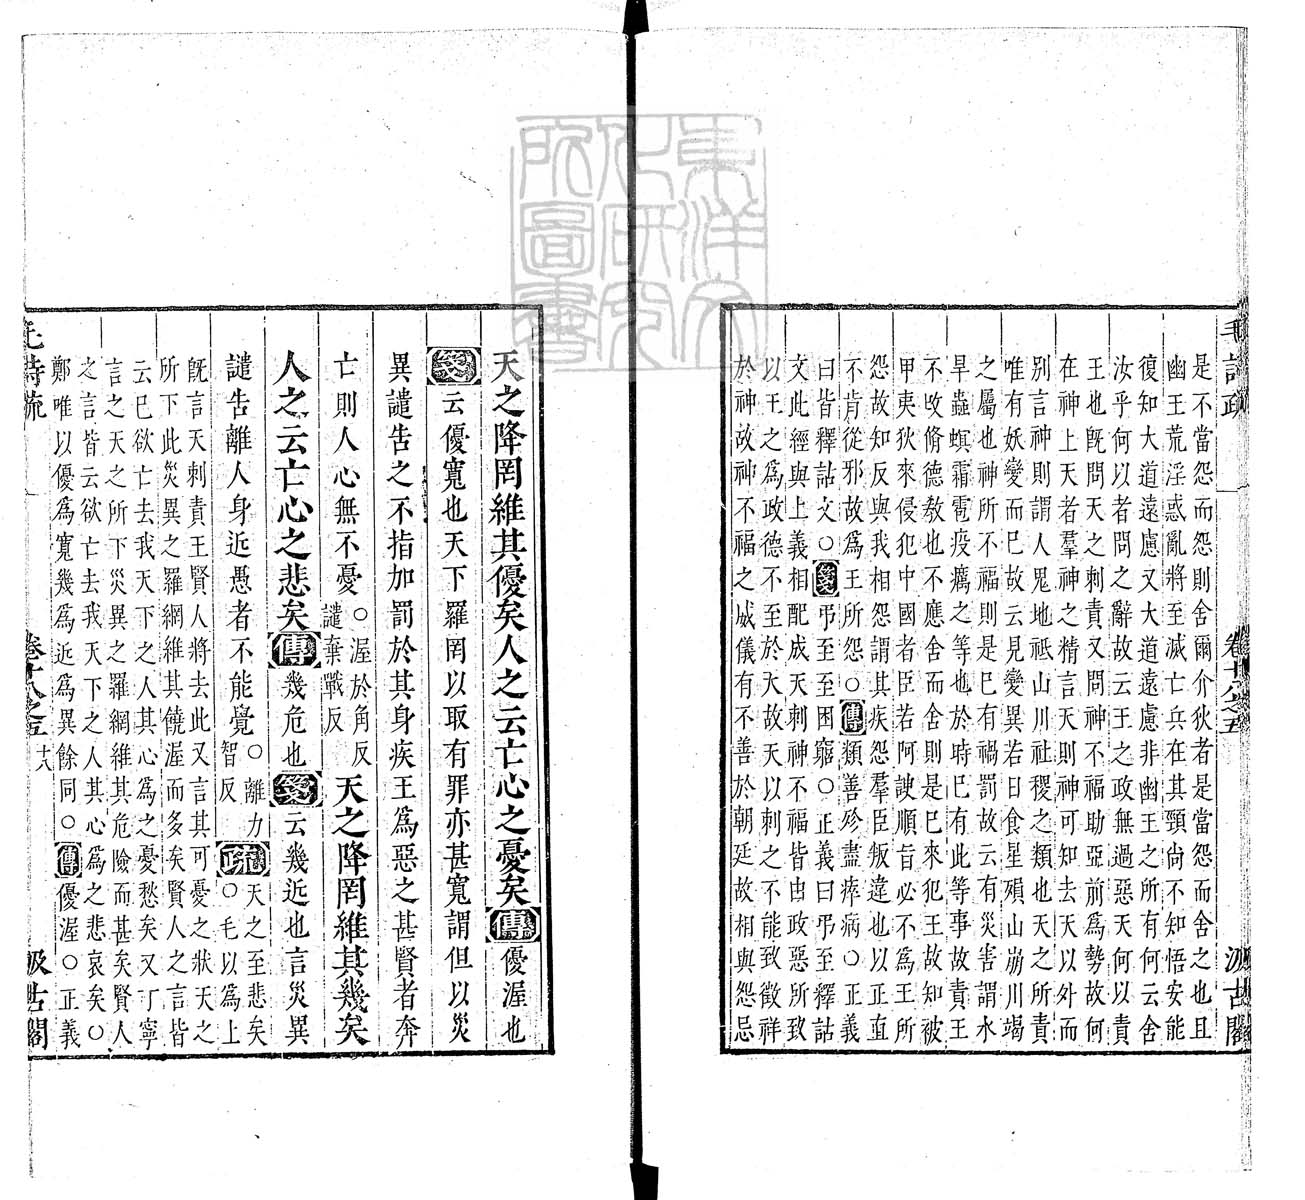 毛詩疏
卷十八之五
汲古閣
是不當怨而怨則舍爾介狄者是當怨而舍之也且
幽王荒淫惑亂將至滅亡兵在其頸尚不知悟安能
復知大道遠慮又大道遠慮非幽王之所有何云舍
汝乎何以者問之辭故云王之政無過惡天何以責
王也旣問天之刺責又問神不福助亞前爲勢故何
在神上天者羣神之精言天則神可知去天以外而
別言神則謂人鬼地祗山川社稷之類也天之所責
唯有妖變而已故云見變異若日食星殞山崩川竭
之屬也神所不福則是巳有禍罰故云有災害謂水
旱蟲螟霜雹疫癘之等也於時巳有此等事故責王
不攺脩德敎也不應舍而舍則是巳來犯王故知被
甲夷狄來侵犯中國者臣若阿諛順旨必不爲王所
怨故知反與我相怨謂其疾怨羣臣叛違也以正直
不肯從邪故爲王所怨○傳類善殄盡瘁病○正義
曰皆釋詁文○箋弔至至困窮○正義曰弔至釋詁
文此經與上義相配成天刺神不福皆由政惡所致
以王之爲政德不至於天故天以刺之不能致徵祥
於神故神不福之威儀有不善於朝廷故相與怨忌
天之降罔維其優矣人之云亡心之憂矣傳優渥也
箋云優寬也天下羅罔以取有罪亦甚寬謂但以災
異譴告之不指加罰於其身疾王爲惡之甚賢者奔
亡則人心無不憂○渥於角反譴棄戰反天之降罔維其幾矣
人之云亡心之悲矣傳幾危也箋云幾近也言災異
譴告離人身近愚者不能覺○離力智反疏天之至悲矣○毛以爲上
旣言天刺責王賢人將去此又言其可憂之狀天之
所下此災異之羅網維其饒渥而多矣賢人之言皆
云巳欲亡去我天下之人其心爲之憂愁矣又丁寧
言之天之所下災異之羅網維其危險而甚矣賢人
之言皆云欲亡去我天下之人其心爲之悲哀矣○
鄭唯以優爲寬幾爲近爲異餘同○傳優渥○正義
毛詩疏
卷十八之五
十八
汲古閣